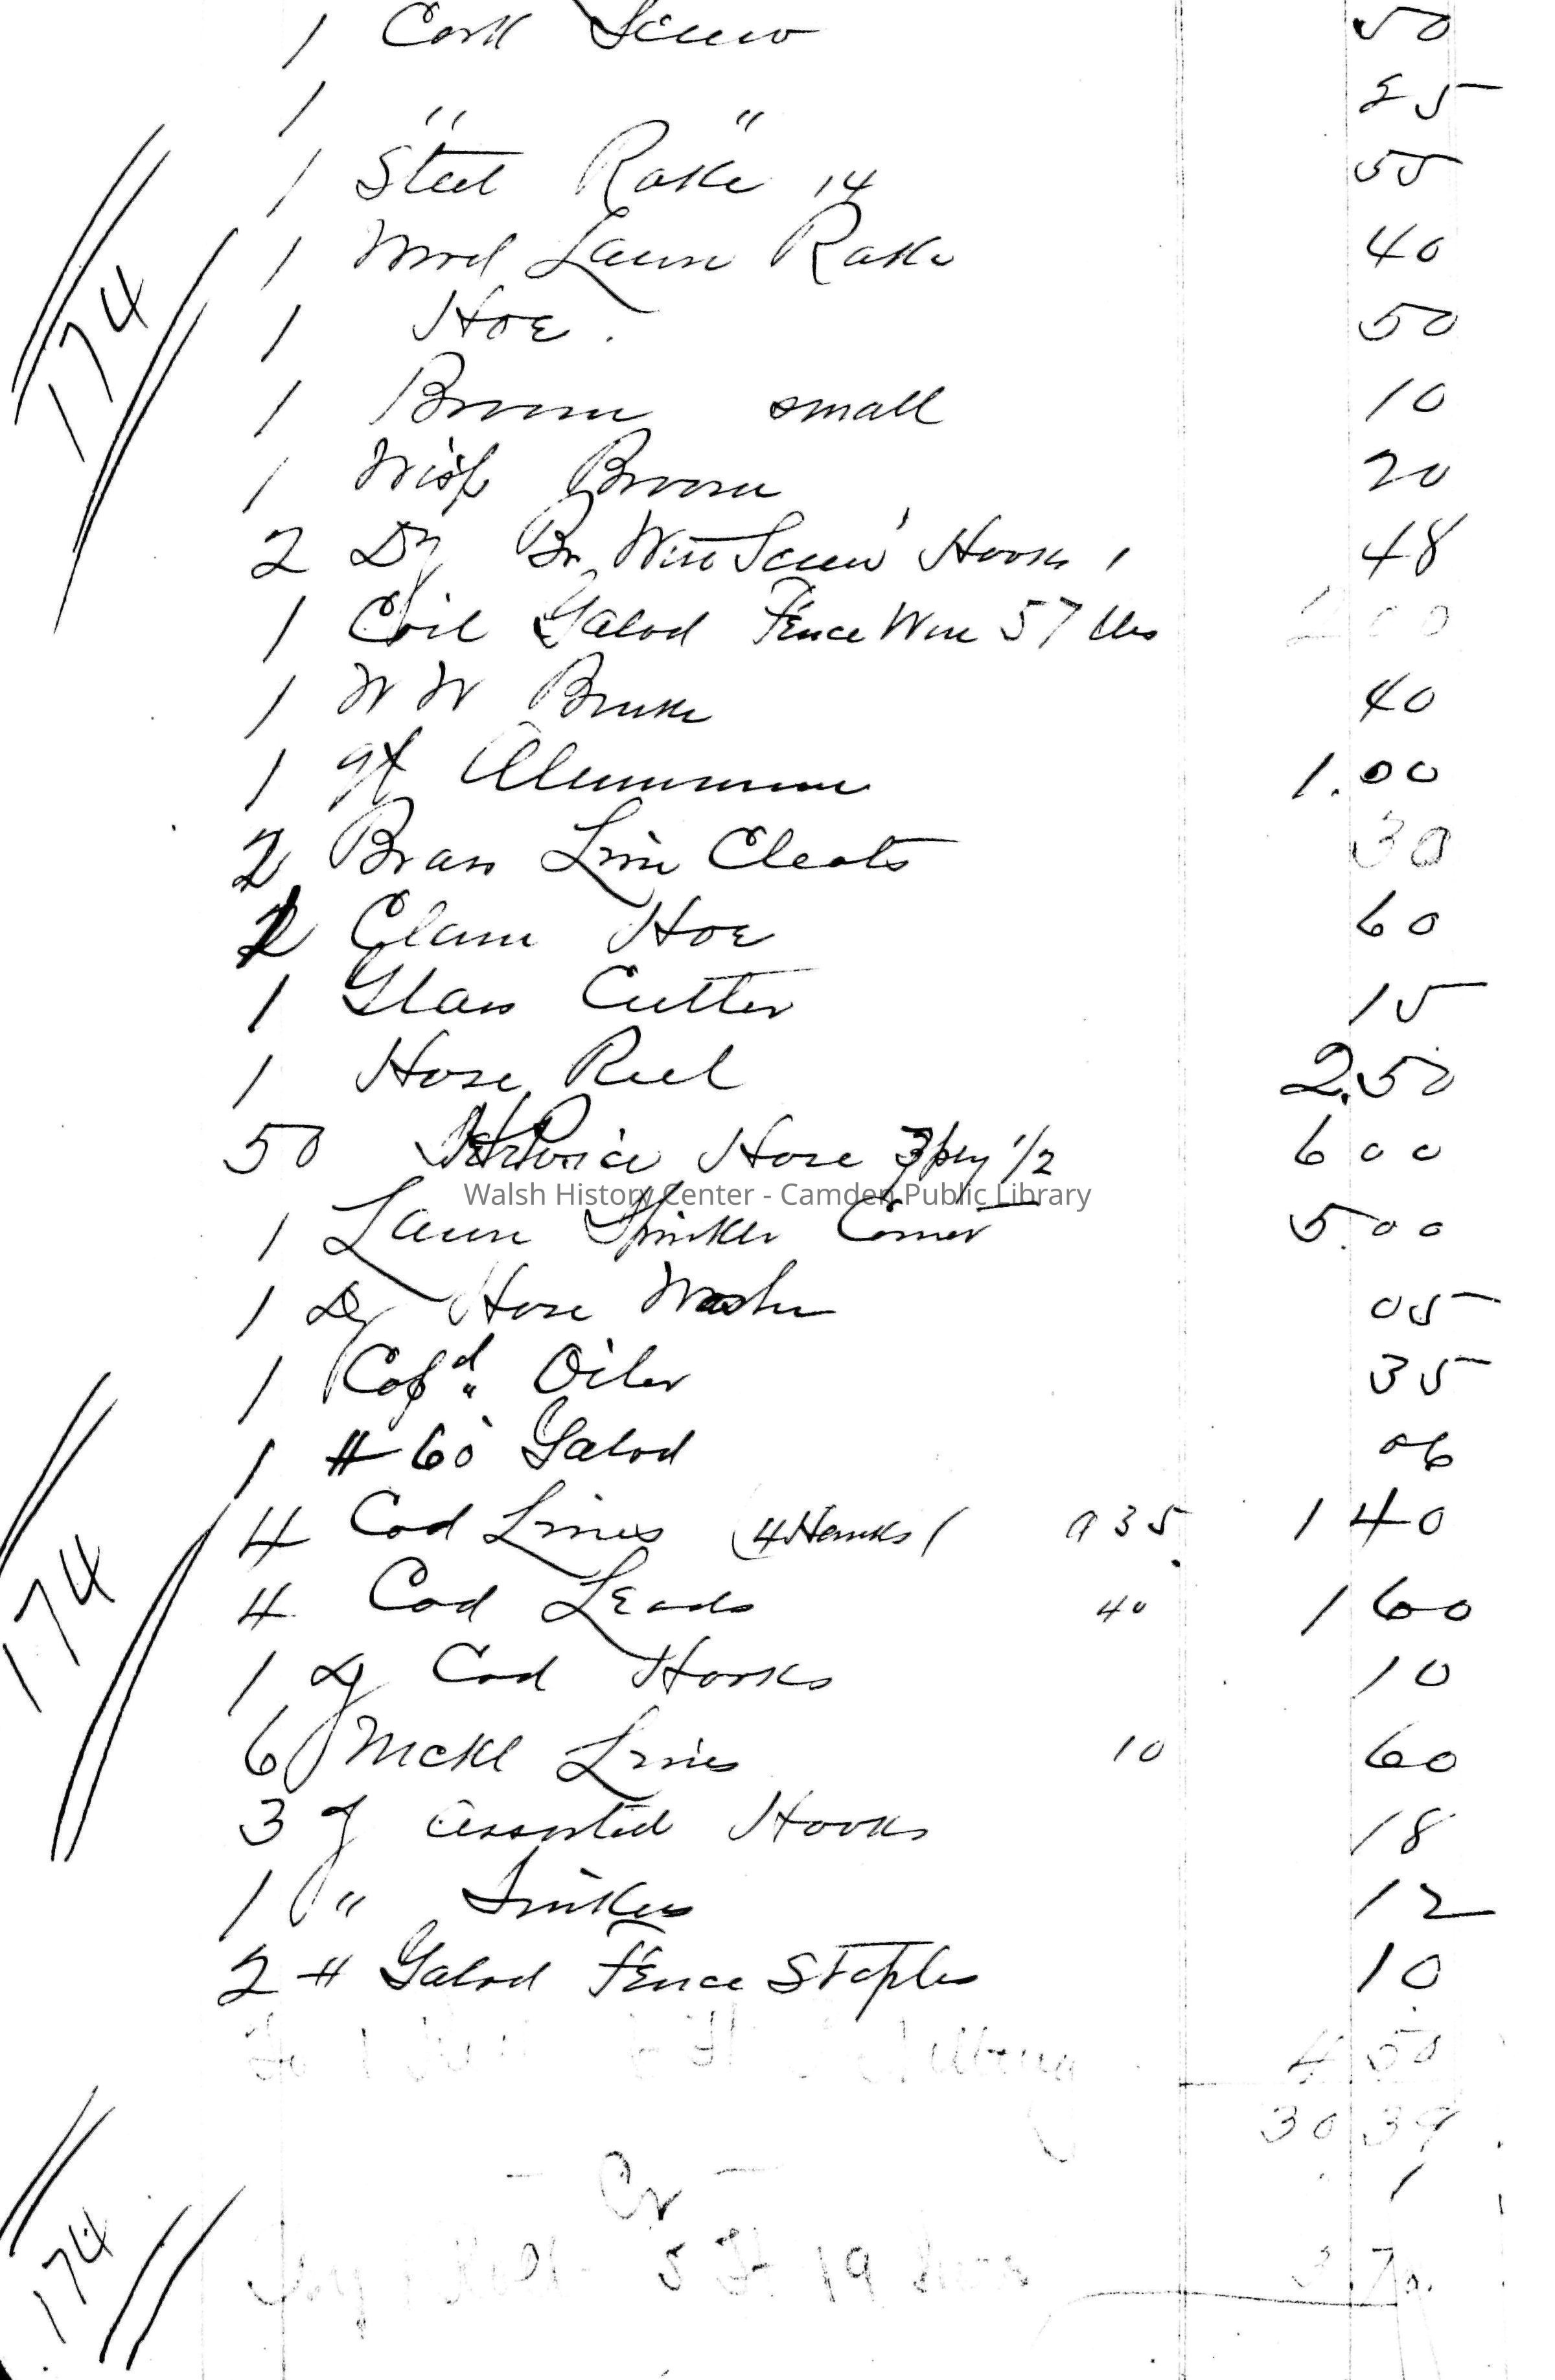 1 Cork Screw 50
1 " " 25
1 Steel Rake 14 55
1 Wood Lawn Rake 40
174
1 Hoe . 50
1 Broom small 10
1 Wisp Broom 20
2 Dz Br Wire Screw Hooks 48
1 Coil Galvd Fence Wire 57 lbs 2 00
1 W W Brush 40
1 Aluminum 1.00
2 Brass Line Cleats 30
Clam Hoe 60
1 Glass Cutter 15
1 Hose Reel 2.50
50 Hose 3 ply 1/2 6 00
Walsh History Center - Camden Public Library
1 Lawn Sprinkler Comet 5.00
1 Dz Hose Washer 05
1 Copd Oiler 35
1 # 60 Galvd 06
4 Cod Lines (4 Hanks) a 35 1 40
174
4 Cod Leads 40 1 60
1 dz Cod Hooks 10
6 Mckl Lines 10 60
3 dz assorted Hooks 18
1 " Sinkers 12
2 # Galvd Fence Staples 10
4 50
30 39
Cr
174
3.70